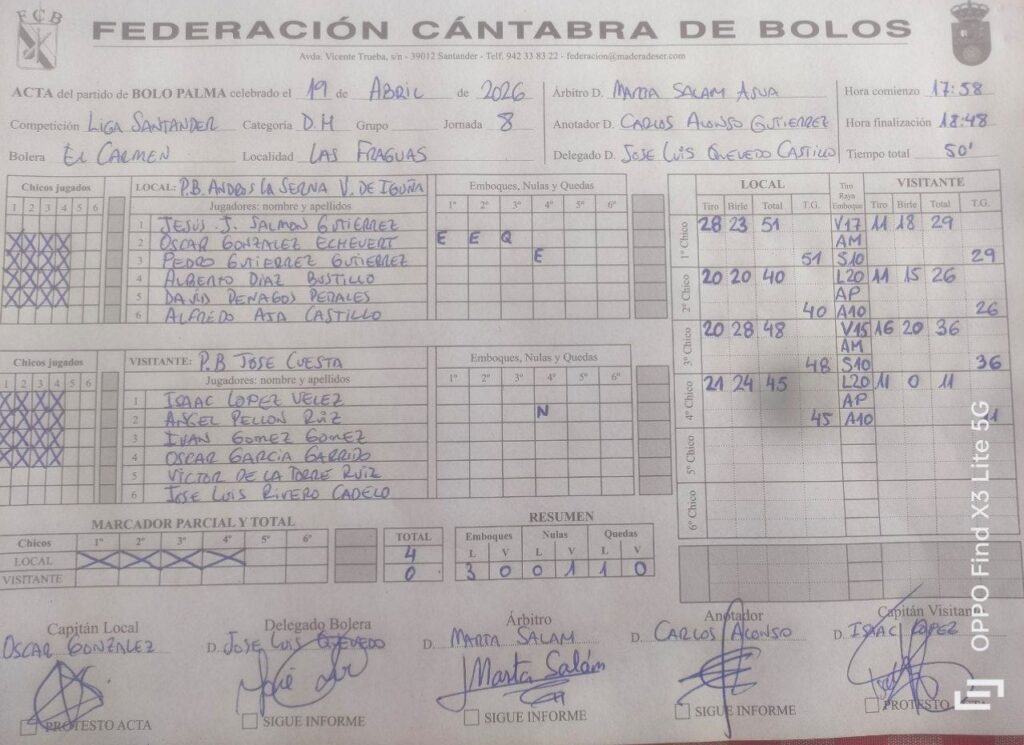 FCB
FEDERACIÓN CÁNTABRA DE BOLOS
Avda. Vicente Trueba, s/n - 39012 Santander - Telf. 942 33 83 22 - federacion@maderadeser.com
ACTA del partido de BOLO PALMA celebrado el 19 de ABRIL de 2026
Competición LIGA SANTANDER Categoría D.H Grupo Jornada 8
Bolera EL CARMEN Localidad LAS FRAGUAS
Árbitro D. MARTA SALAM ASUA
Anotador D. CARLOS ALONSO GUTIERREZ
Delegado D. JOSE LUIS QUEVEDO CASTILLO
Hora comienzo 17:58
Hora finalización 18:48
Tiempo total 50'
Chicos jugados LOCAL: P.B. ANDROS LA SERNA V. DE IGUÑA Emboques, Nulas y Quedas
1 2 3 4 5 6 Jugadores: nombre y apellidos 1º 2º 3º 4º 5º 6º
1 JESUS J. SALMON GUTIERREZ
2 OSCAR GONZALEZ ECHEVERT E E Q
3 PEDRO GUTIERREZ GUTIERREZ E
4 ALBERTO DIAZ BUSTILLO
5 DAVID PENAGOS PERALES
6 ALFREDO AJA CASTILLO
Chicos jugados VISITANTE: P.B JOSE CUESTA Emboques, Nulas y Quedas
1 2 3 4 5 6 Jugadores: nombre y apellidos 1º 2º 3º 4º 5º 6º
1 ISAAC LOPEZ VELEZ
2 ANGEL PELLON RUIZ N
3 IVAN GOMEZ GOMEZ
4 OSCAR GARCIA GARRIDO
5 VICTOR DE LA TORRE RUIZ
6 JOSE LUIS RIVERO CADELO
LOCAL Tiro Raya Emboque VISITANTE
Tiro Birle Total T.G. Tiro Birle Total T.G.
1º Chico 28 23 51 V17 11 18 29
AM
51 S10 29
2º Chico 20 20 40 L20 11 15 26
AP
40 A10 26
3º Chico 20 28 48 V15 16 20 36
AM
48 S10 36
4º Chico 21 24 45 L20 11 0 11
AP
45 A10 11
5º Chico
6º Chico
MARCADOR PARCIAL Y TOTAL
Chicos 1º 2º 3º 4º 5º 6º TOTAL
LOCAL X X X X 4
VISITANTE 0
RESUMEN
Emboques Nulas Quedas
L V L V L V
3 0 0 1 1 0
Capitán Local Delegado Bolera Árbitro Anotador Capitán Visitan
OSCAR GONZALEZ D. JOSE LUIS QUEVEDO D. MARTA SALAM D. CARLOS ALONSO D. ISAAC LOPEZ
Marta Salám
PROTESTO ACTA SIGUE INFORME SIGUE INFORME SIGUE INFORME PROTESTO ACTA
OPPO Find X3 Lite 5G